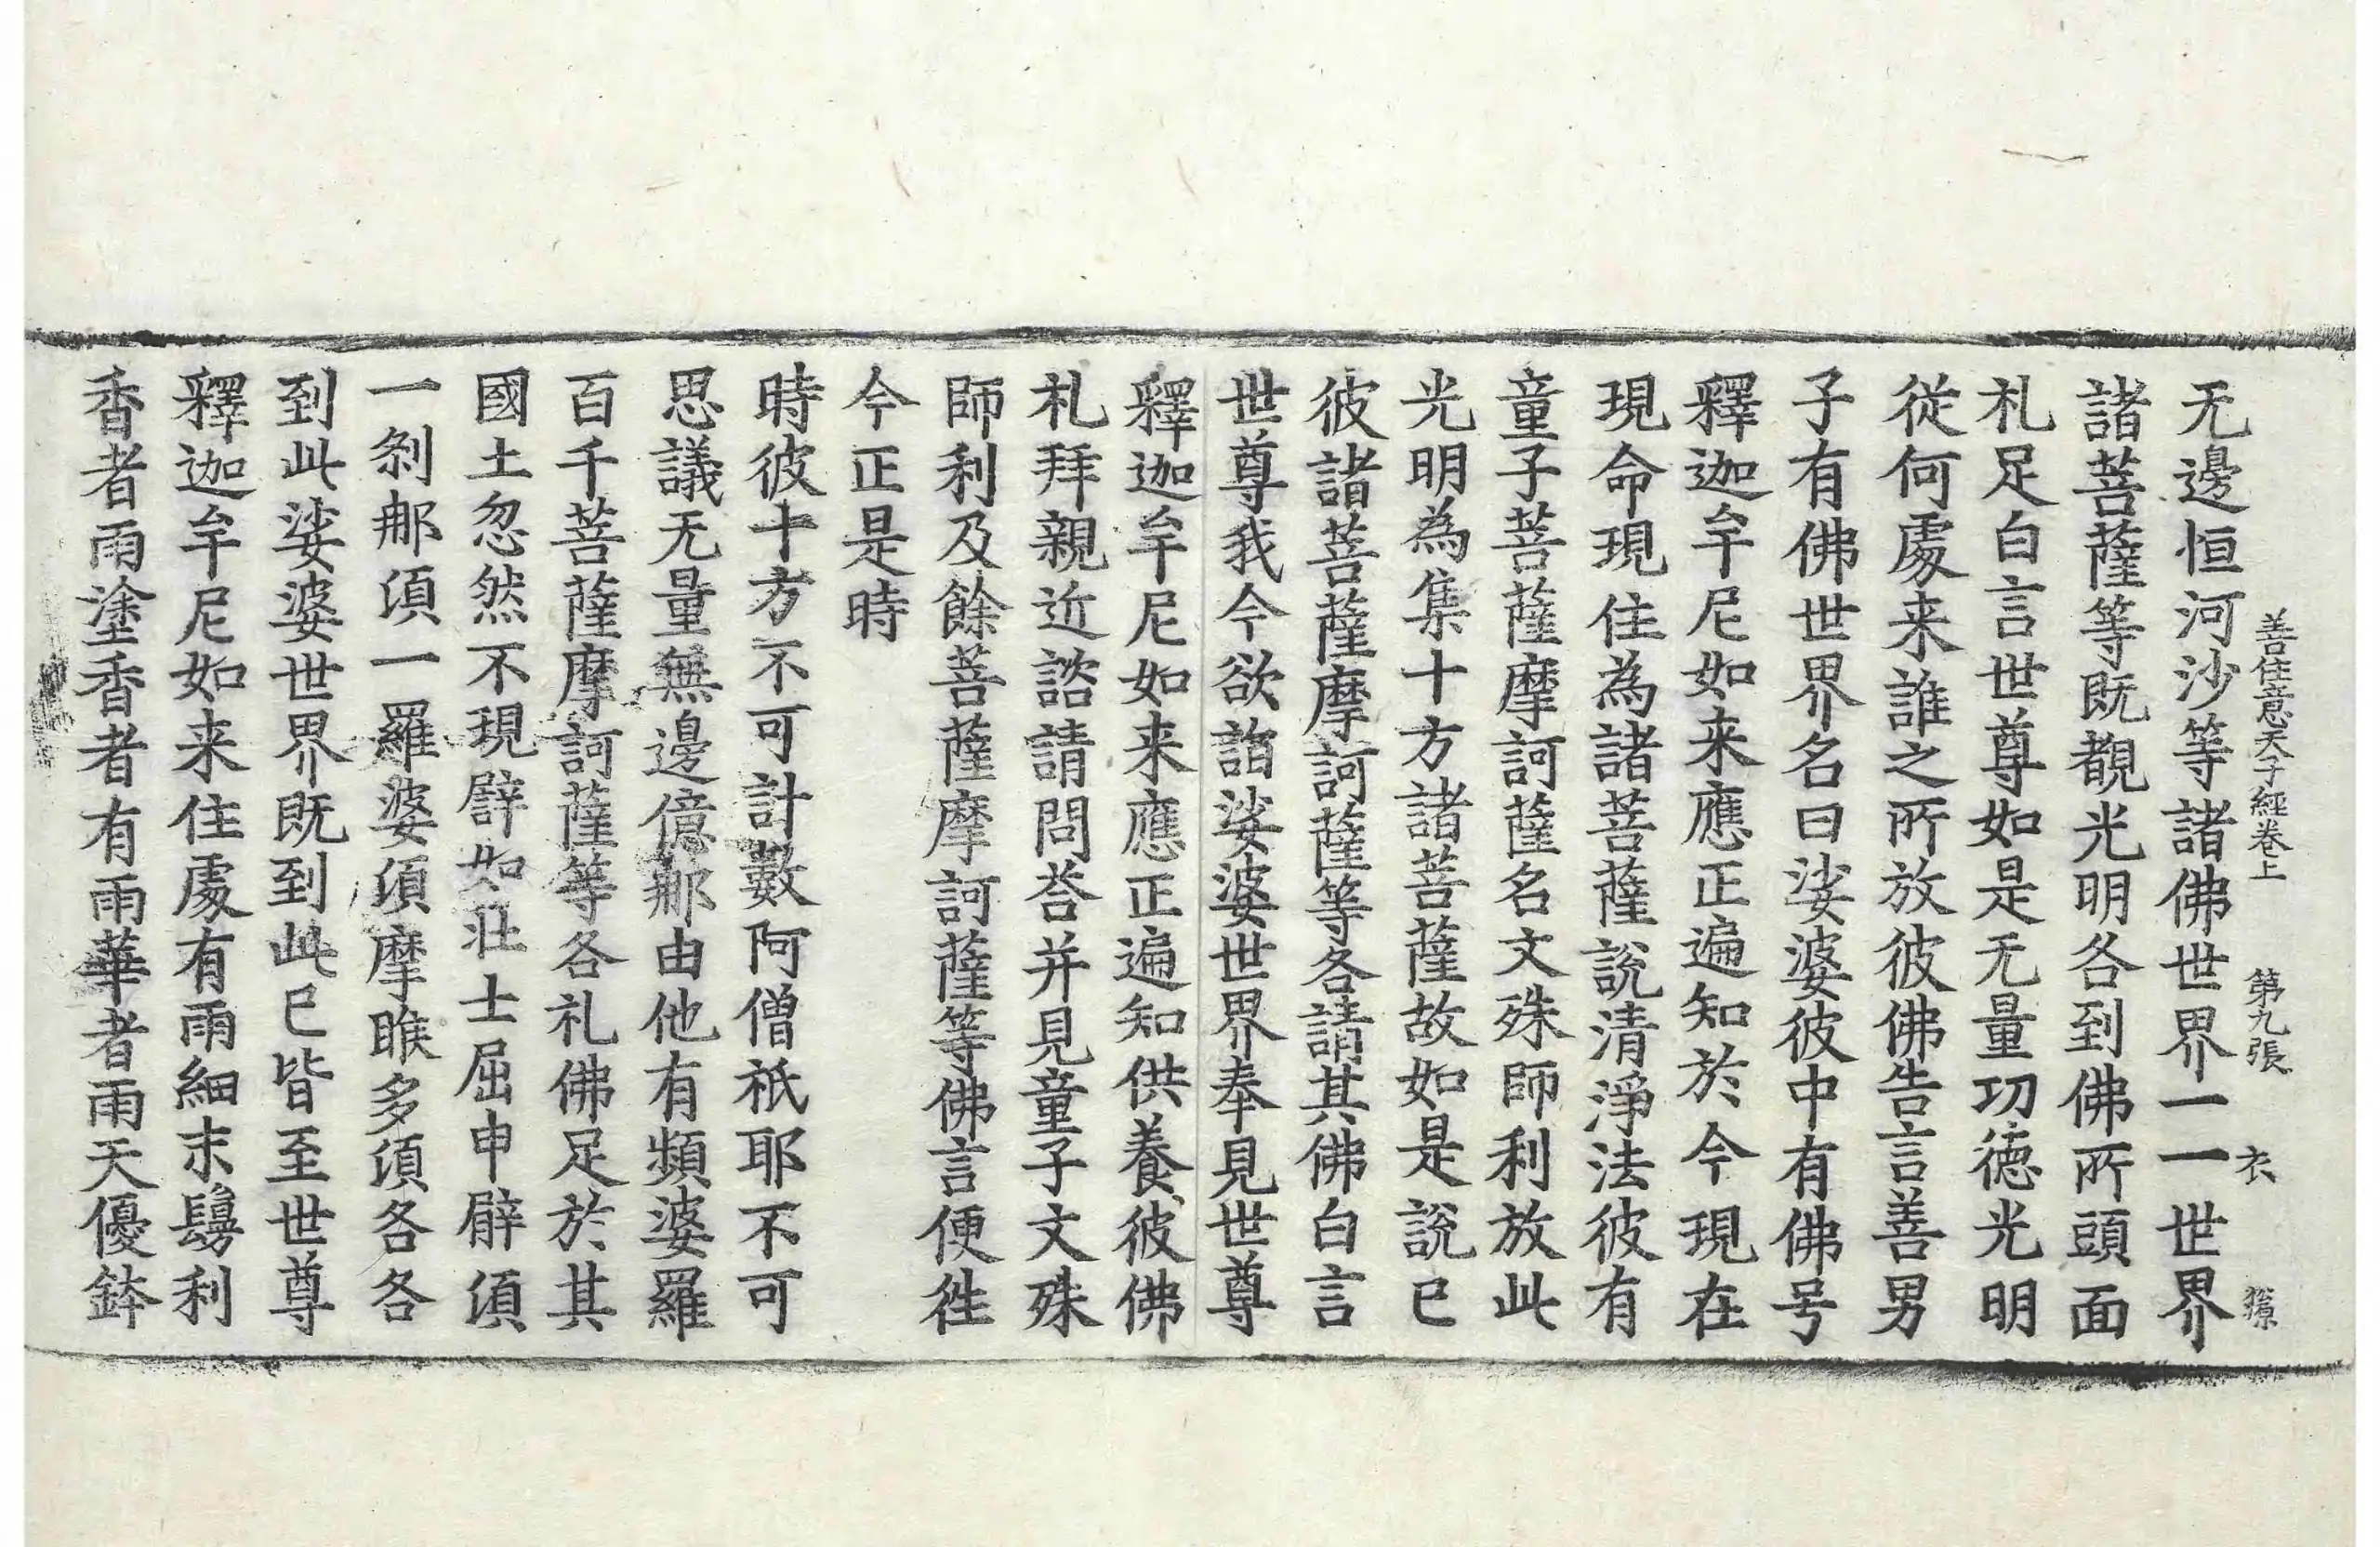 善住意天子經卷上 第九張 衣
无邊恒河沙等諸佛世界一一世界
諸菩薩等既覩光明各到佛所頭面
礼足白言世尊如是无量功德光明
從何處来誰之所放彼佛告言善男
子有佛世界名曰娑婆彼中有佛号
釋迦牟尼如来應正遍知於今現在
現命現住為諸菩薩說清淨法彼有
童子菩薩摩訶薩名文殊師利放此
光明為集十方諸菩薩故如是說已
彼諸菩薩摩訶薩等各請其佛白言
世尊我今欲詣娑婆世界奉見世尊
釋迦牟尼如来應正遍知供養彼佛
礼拜親近諮請問荅并見童子文殊
師利及餘菩薩摩訶薩等佛言便徃
今正是時
時彼十方不可計數阿僧祇耶不可
思議无量無邊億那由他有頻婆羅
百千菩薩摩訶薩等各礼佛足於其
國土忽然不現譬如壯士屈申臂湏
一剎那湏一羅婆湏摩睺多湏各各
到此娑婆世界既到此已皆至世尊
釋迦牟尼如来住處有雨細末鬘利
香者雨塗香者有雨華者雨天優鉢